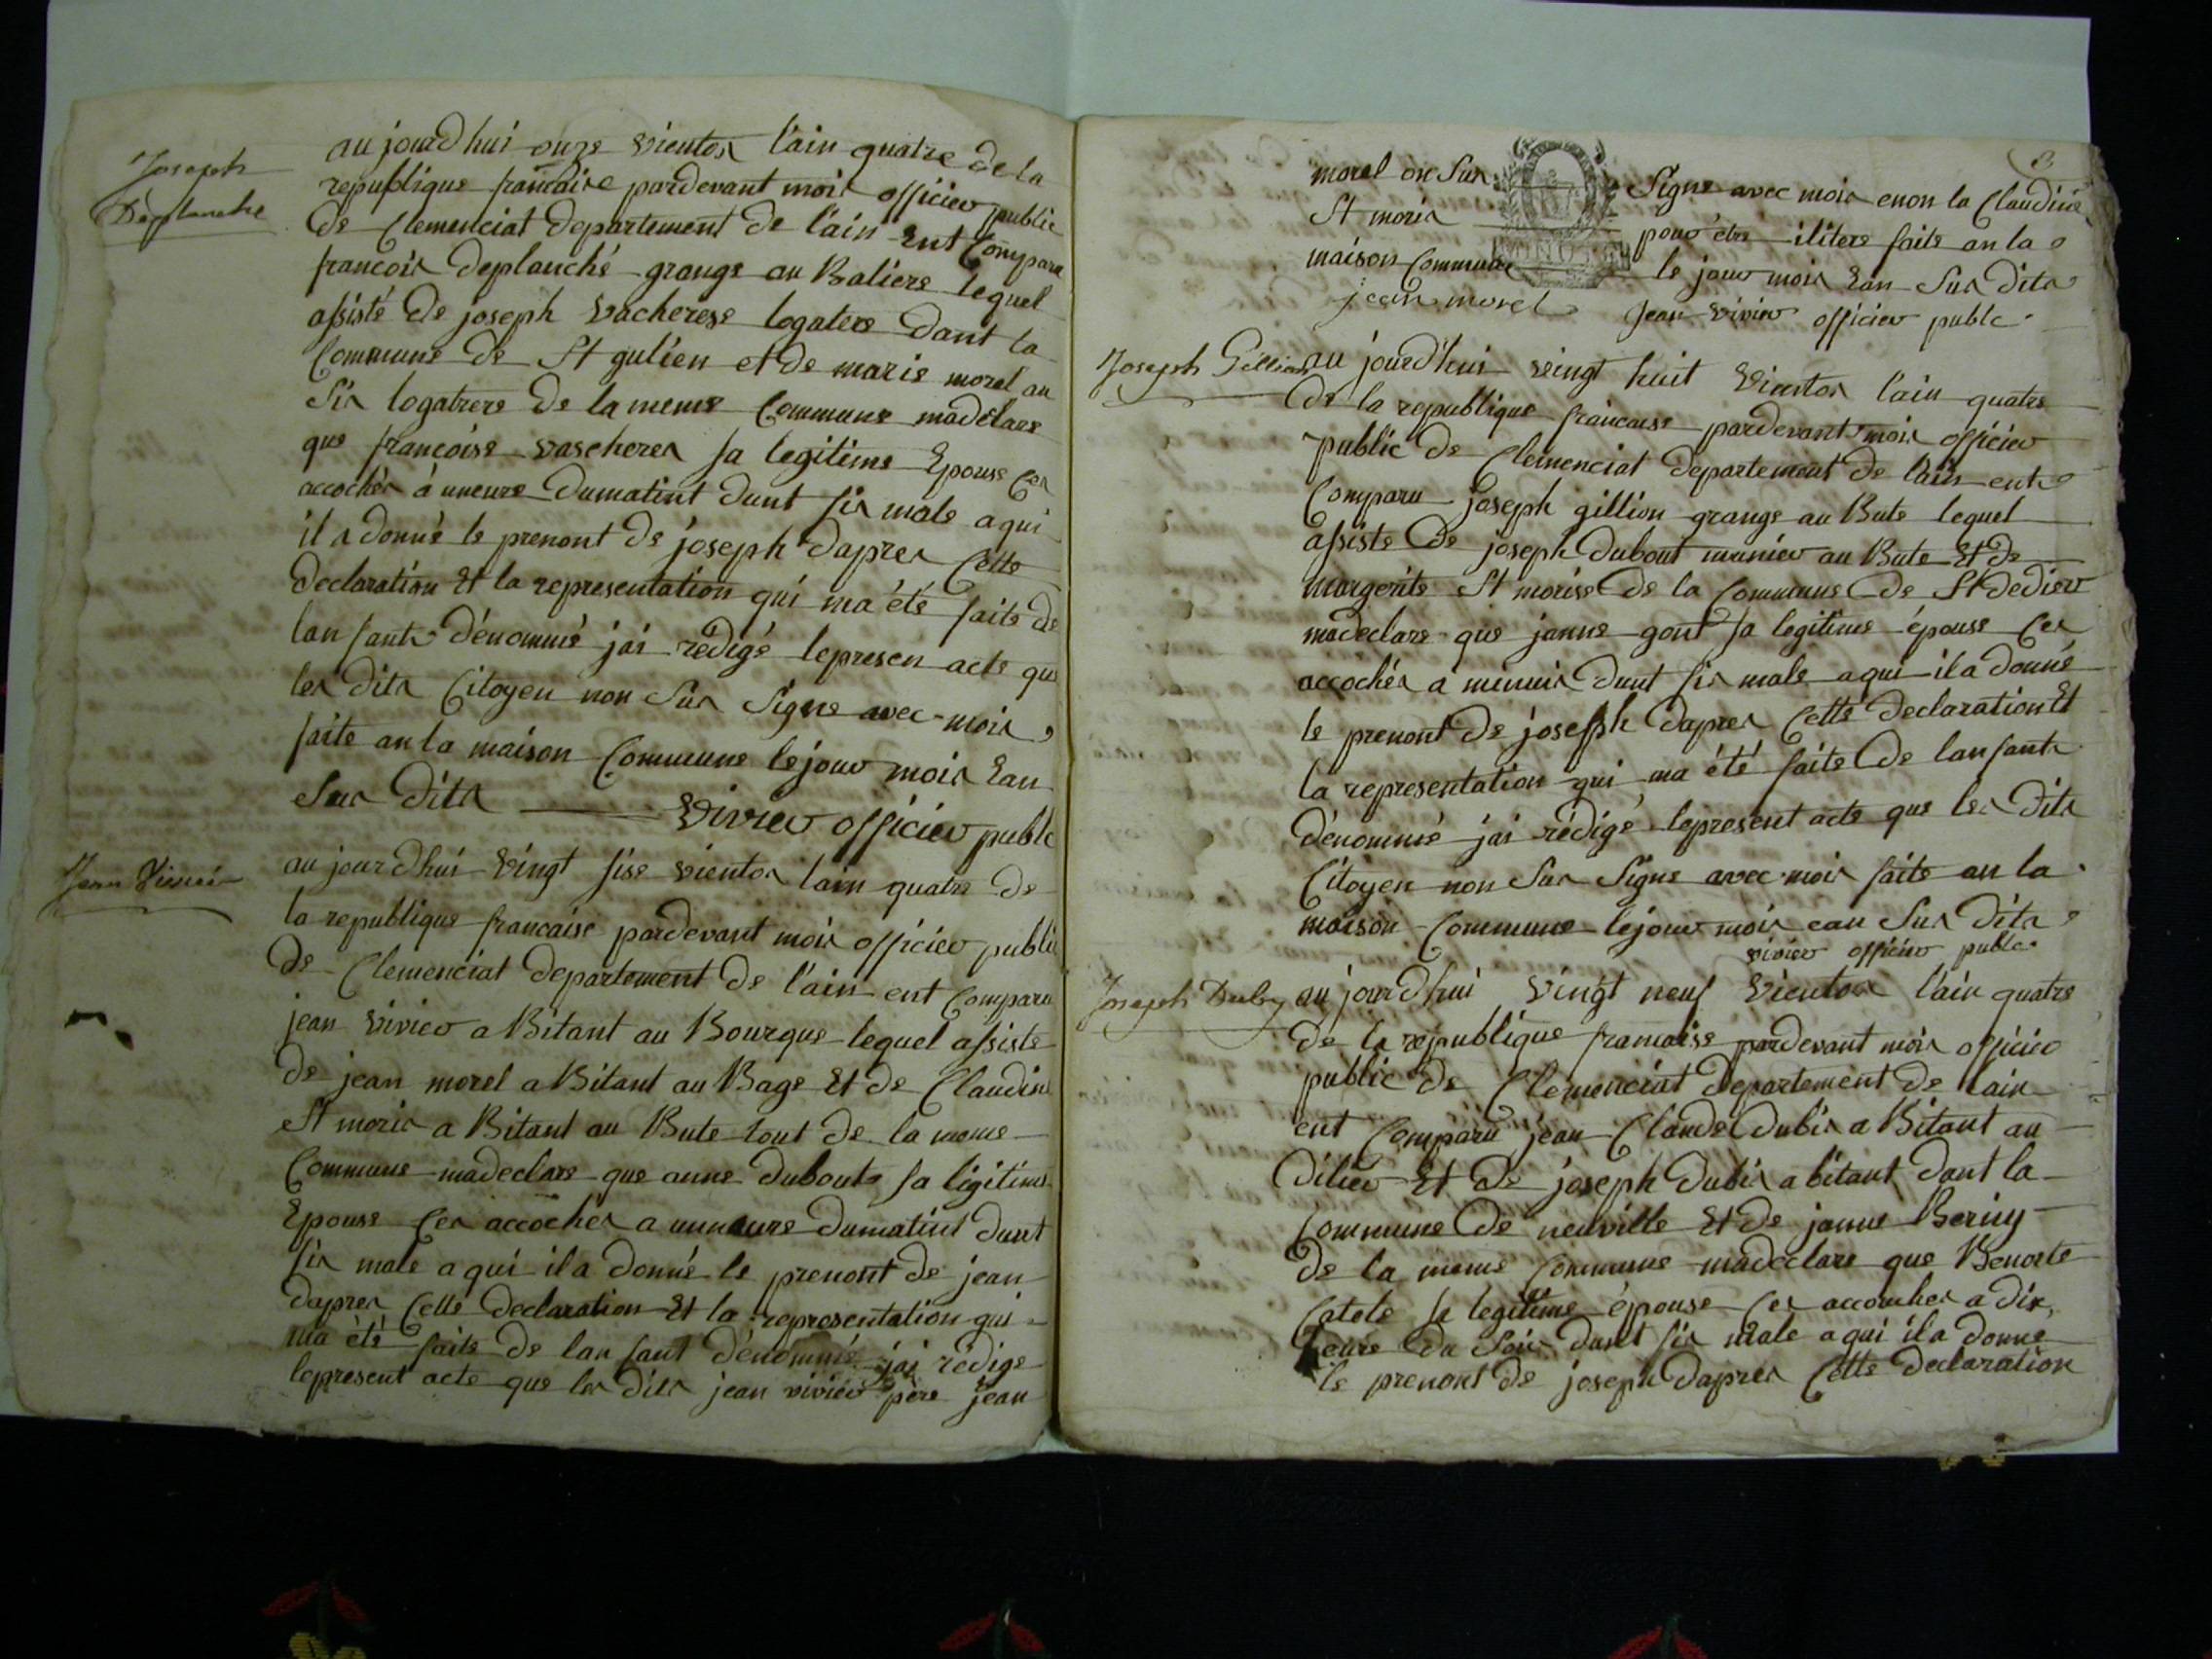 Joseph
Déplanche
au jourdhui onze vientos l'ain quatre de la
republique francaise pardevant mois officiev public
de Clemenciat departement de l'ain ent Compara
francois deplanché grange au Baliere lequel
assisté de joseph vacherese logatere dant la
Commune de St gulien et de marie morel au
sis logatrere de la meme Commune madélare
que francoise vascheres sa legitime Epouse ces
accochés à uneure dumatint dunt fis male aqui
il a donné le prenont de joseph dapres Cette
declaration Et la representation qui ma été faite de
lanfante dénommé jai rédigé lepresen acte que
les dits Citoyen non sus signe avec mois
faite an la maison Commune lejouv mois Ean
sus dits viviev officiev publc
Jean Vivier
au jourdhui vingt sise vientos lain quatre de
la republique francaise pardevant mois officiev public
de Clemenciat departement de l'ain ent Comparu
jean viviev a Bitant au Bourque lequel assiste
de jean morel a Bitant au Bage Et de Claudine
St moris a Bitant au Bute tout de la meme
Commune madeclare que anne dubout sa ligitime
Epouse Ces accochés a unneure dumatint dunt
fis male aqui il a donné le prenont de jean
dapres Cette declaration Et la representation qui
ma été faite de lanfant dénommé jai rédige
lepresent acte que les dits jean viviev père jean
morel on sus signe avec mois enon la Claudine
St moris pouv étre ilitere faite an la
maison Commune le jouv mois Ean sus dits
jean morel Jean viviev officiev publc
Joseph Gillion
au jourd'hui vingt huit vientos l'ain quatre
de la republique francaise pardevant mois officiev
public de Clemenciat departement de l'ain ent
Comparu joseph gillion grange au Bute lequel
assiste de joseph dubout muniev au Bute Et de
margerite St morise de la Commune de St dediev
madeclare que janne gont sa legitime épouse Ces
accochés a minuis dunt fis male aqui il a donné
le prenont de joseph dapres Cette declaration Et
la representation qui ma été faite de lanfante
dénommé jai rédigé lepresent acte que les dits
Citoyen non sus signe avec mois faite an la
maison Commune lejouv mois ean sus dits
viviev officiev publc
Joseph Duby
au jourdhui vingt neuf vientos l'ain quatre
de la republique francaise pardevant mois officiev
public de Clemenciat departement de lain
ent Comparu jean Claude dubis a Bitant au
diliev Et de joseph dubis abitant dant la
Commune de neuville Et de janne Beriny
de la meme Commune madeclare que Benoite
Catele sa legitime épouse Ces accouchés a dix
heure du soir dunt fis male aqui il a donne
le prenont de joseph dapres Cette declaration